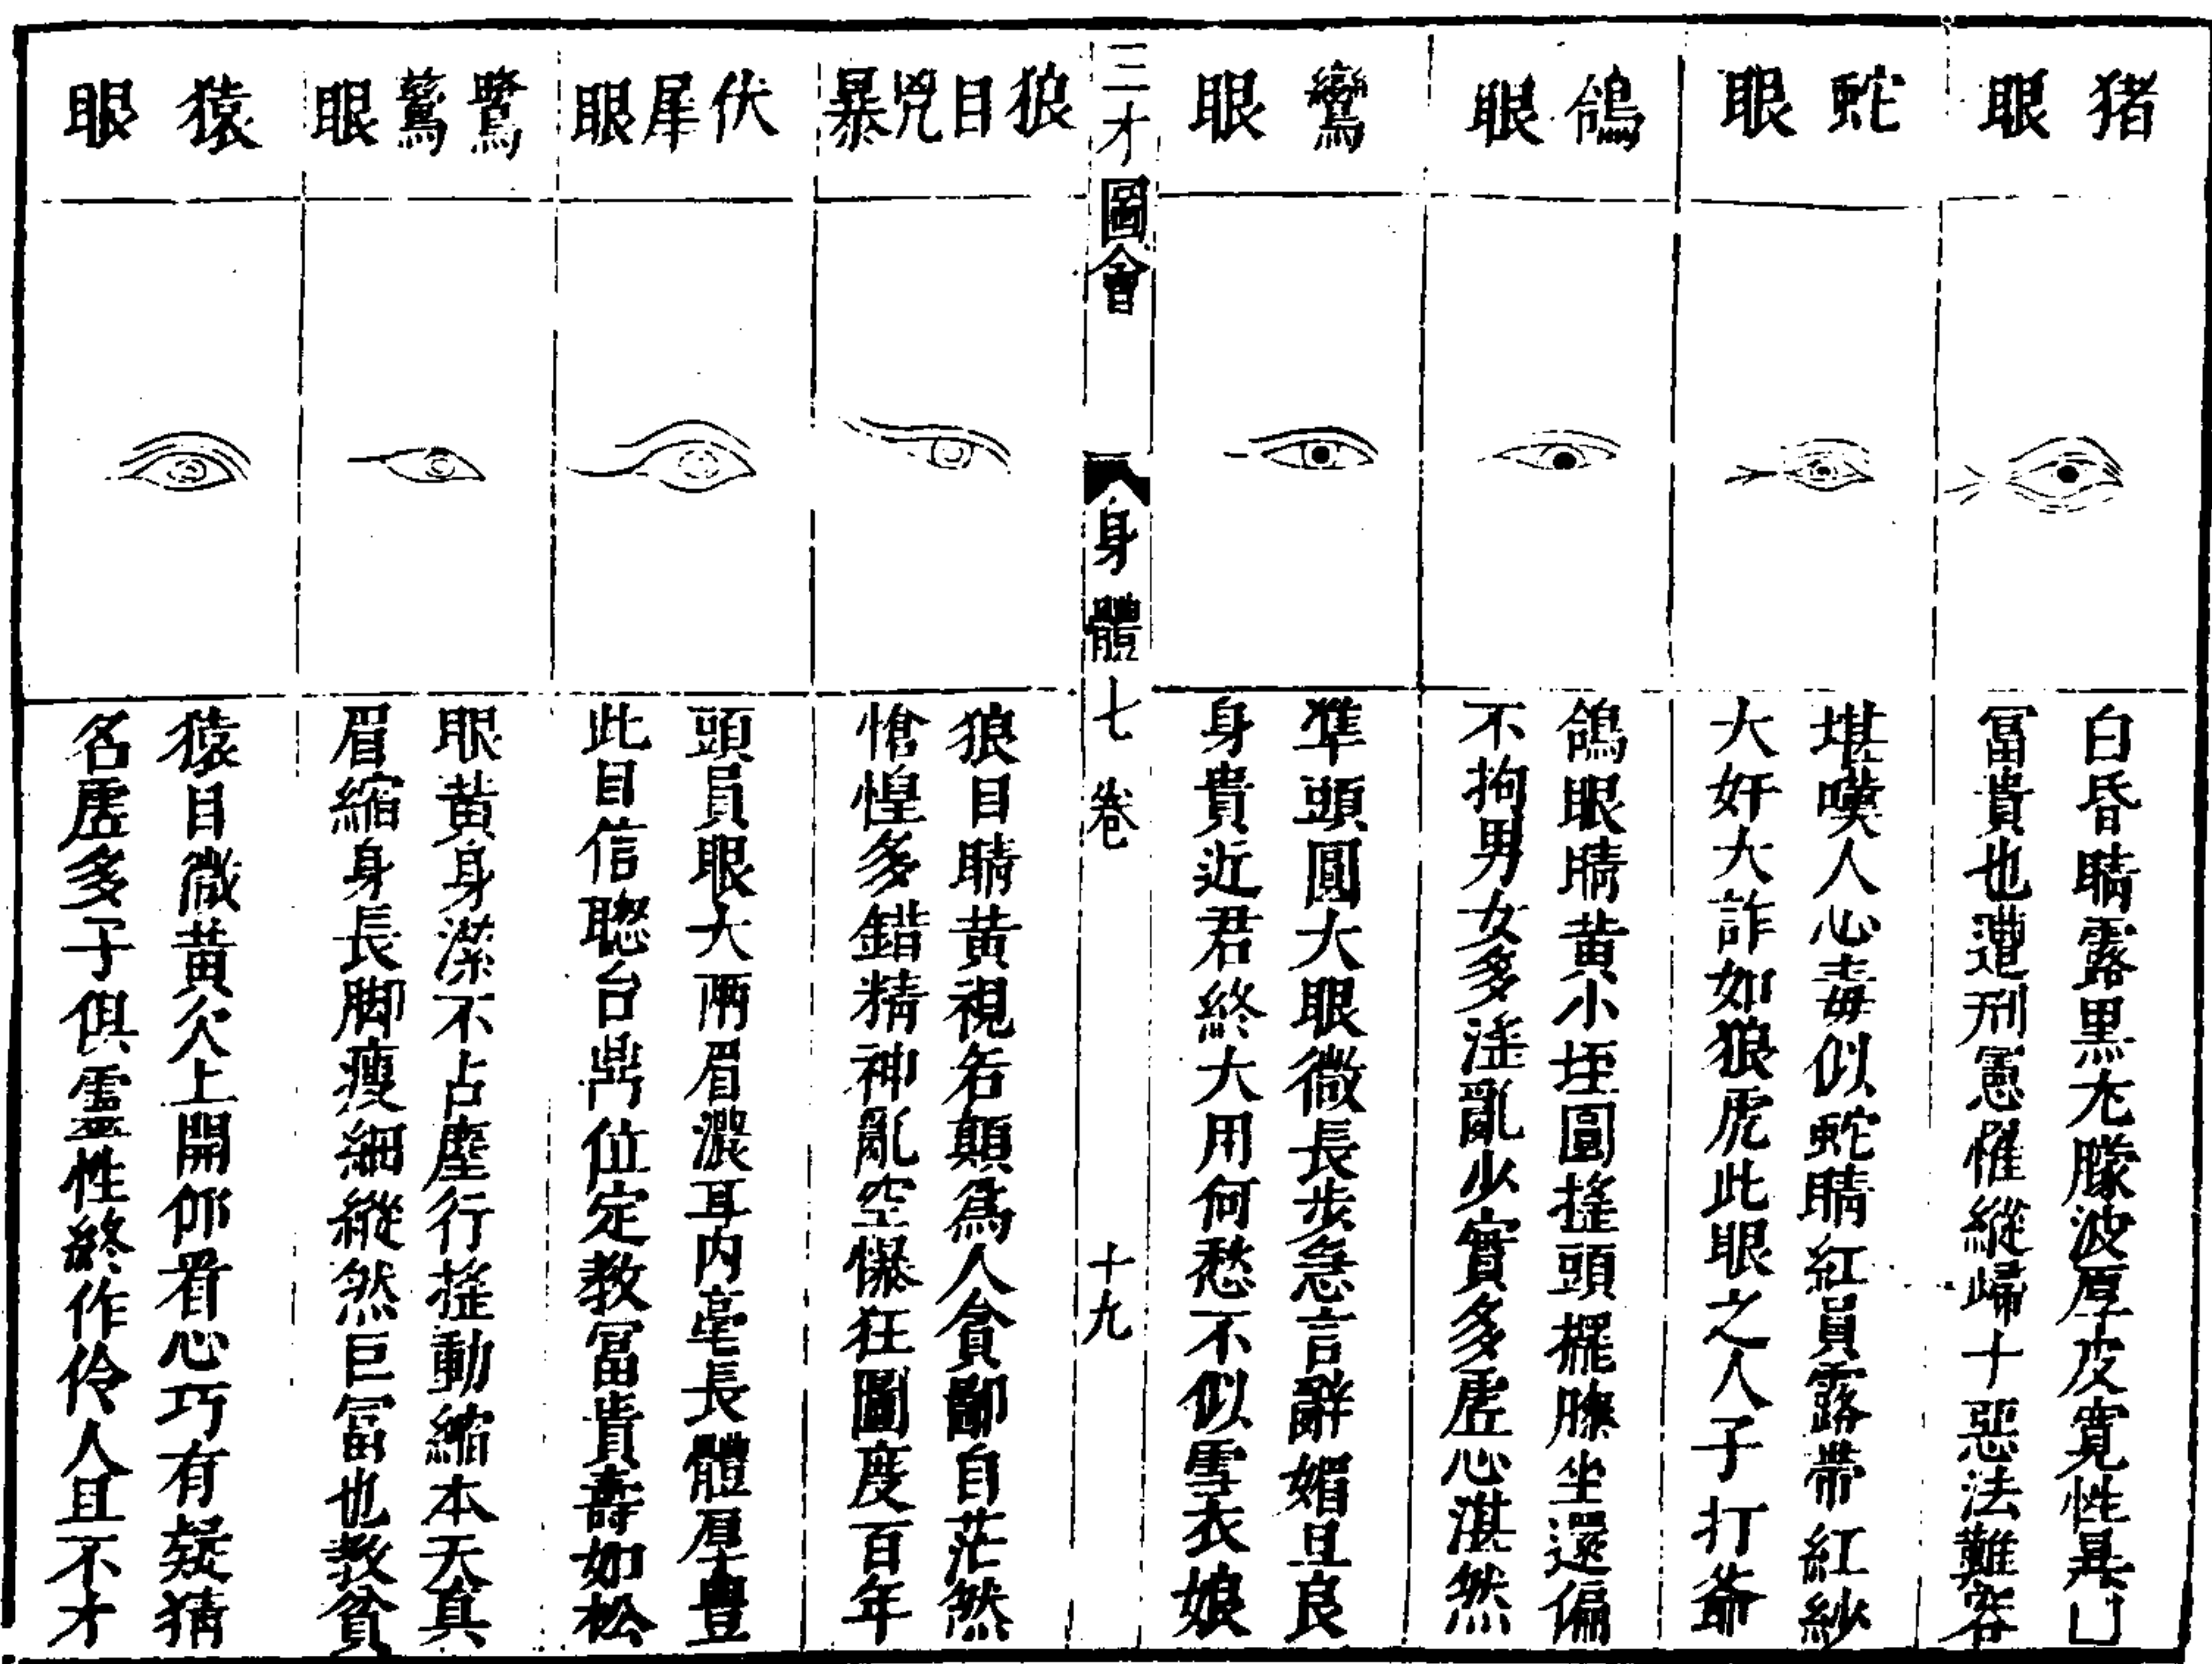 猪眼
白昏睛露黑尤朦波厚皮寬性
冨貴也遭刑憲催縱歸十惡法難容
蛇眼
堪嘆人心毒似蛇睛紅員露帶紅紗
大奸大詐如狼虎此眼之人子打爺
鴿眼
鴿眼睛黃小圓搖頭擺膝坐還偏
不拘男女多淫亂少實多虛心湛然
鸞眼
凖頭圓大眼微長步急言辭媚且良
身貴近君終大用何愁不似雪衣娘
三才圖會 身體七卷 十九
狼目兇暴
狼目睛黃視若顛為人貪鄙自茫然
愴惶多錯精神亂空㬥狂圖度百年
伏犀眼
頭員眼大兩眉濃耳內毫長體厚豊
此目信聰台鼎位定教冨貴壽如松
鷺鷥眼
眼黃身潔不占塵行搖動縮本天真
眉縮身長脚瘦細縱然巨冨也教貧
猿眼
猿目微黃欠上開仰看心巧有疑猜
名虛多子俱靈性終作伶人且不才